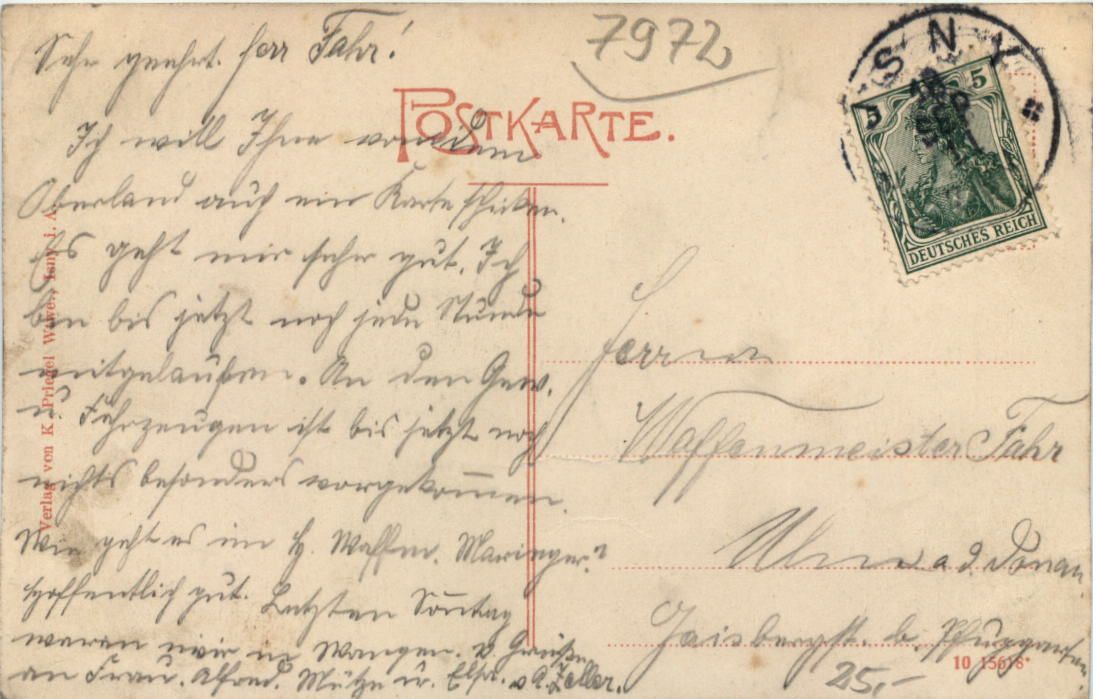 Sehr geehrt. Herr Fahr!
7972
POSTKARTE.
Ich will Ihne von dem
Oberland auch ein Karte schicken.
Es geht mir sehr gut. Ich
bin bis jetzt noch jede Stunde
mitgelaufen. An den Gew.
u. Fahrzeugen ist bis jetzt noch
nichts besonders vorgekommen.
Wie geht es im H. Waffenm. Maringer?
Hoffentlich gut. Letzten Sontag
waren wir in Wangen. Grüße
an Frau. Alfred. u. v. A. Zeller.
Verlag von K. Priegel Wwe., Isny i. A.
ISNY
5 5
DEUTSCHES REICH
Herrn
Waffenmeister Fahr
Ulm a. d. Donau
Gaisbergst. b.
25,-
10 15618